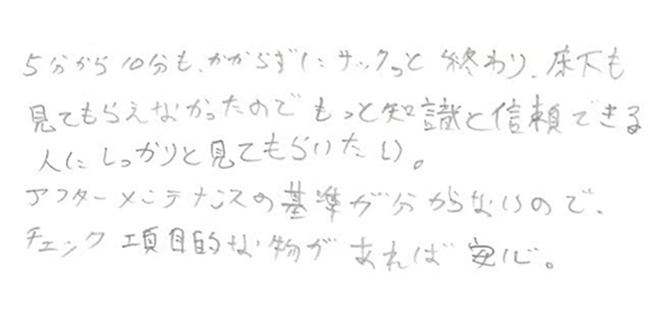 5分から10分も、かからずにサックっと終わり、床下も
見てもらえなかったのでもっと知識と信頼できる
人にしっかりと見てもらいたい。
アフターメンテナンスの基準が分からないので、
チェック項目的な物があれば安心。